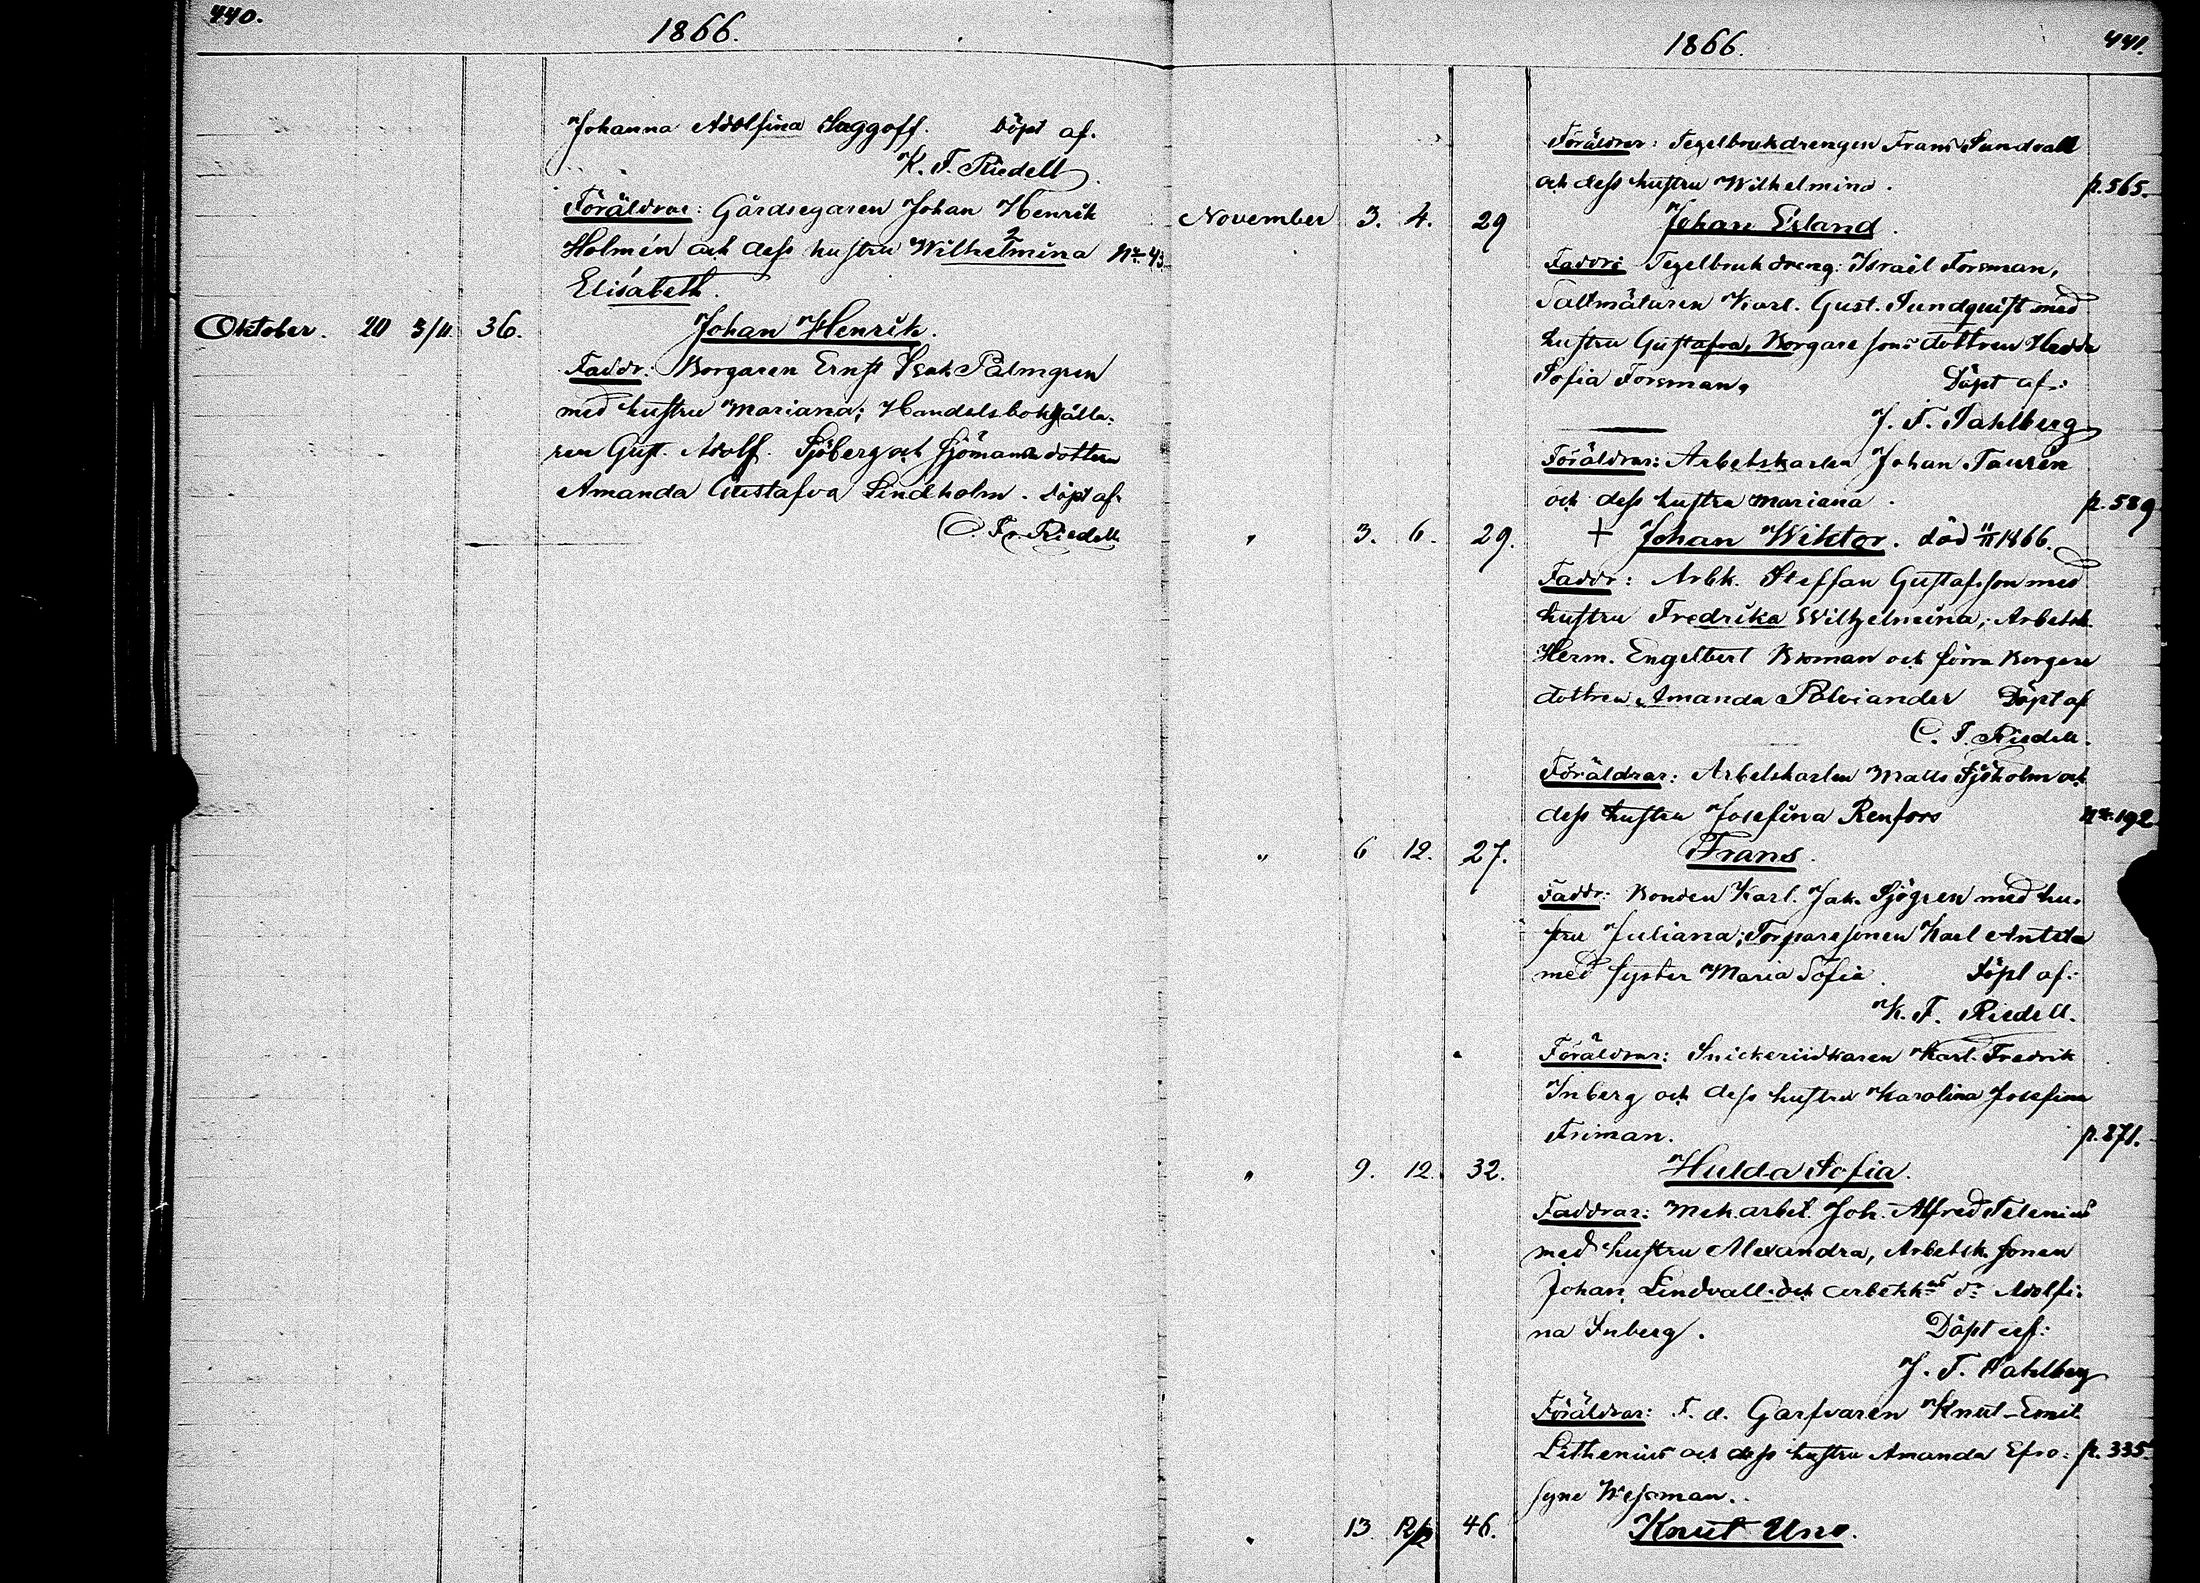 440.
1866.
Johanna Adolfina Saggoff. Döpt af.
K. F. Riedell
Föräldrar: Gårdsegaren Johan Henrik
Holmén och dess hustru Wilhelmina No 43
Elisabeth.
Oktober. 20 3/11 36. Johan Henrik.
Faddr: Borgaren Ernst Isak Palmgren
med hustru Mariana; Handelsbokhålla-
ren Gust. Adolf Sjöberg och Sjömansdottern
Amanda Gustafva Lindholm. Döpt af.
C. Fr. Riedell
1866.
441.
Föräldrar: Tegelbrukdrengen Frans Sundvall
och dess hustru Wilhelmina. p. 565.
November 3. 4. 29 Johan Erland.
Faddr: Tegelbruk dreng: Israël Forsman,
Saltmätaren Karl. Gust. Sundquist med
hustru Gustafva, Borgare sons dottren Hedda
Sofia Forsman. Döpt af:
J. F. Sahlberg
Föräldrar: Arbetskarlen Johan Taurén
och dess hustru Mariana. p. 589
" 3. 6. 29. + Johan Wiktor. död 11/11 1866.
Faddr: Arbk. Steffan Gustafsson med
hustru Fredrika Wilhelmina; Arbetsk.
Herm. Engelbert Broman och förra Borgare
dottren Amanda Polviander Döpt af
C. F. Riedell.
Föräldrar: Arbetskarlen Matts Sjöholm och
dess hustru Josefina Renfors No 192
" 6 12. 27. Frans.
Faddr: Bonden Karl. Jak. Sjögren med hu-
stru Juliana; Torparesonen Karl Anttila
med syster Maria Sofia. Döpt af:
K. F. Riedell.
Föräldrar: Snickeriidkaren Karl. Fredrik
Inberg och dess hustru Karolina Josefina
Friman. p. 271.
" 9. 12. 32. Hulda Sofia.
Faddrar: Mek.arbet. Joh. Alfred Selenius
med hustru Alexandra, Arbetsk. sonen
Johan Lindvall och arbetsk:s dr Adolfi-
na Inberg. Döpt af:
J. F. Sahlberg
Föräldrar: F. d. Garfvaren Knut Emil
Lithenius och dess hustru Amanda Efro- p. 335.
syne Wessman.
" 13. 12/12 46. Knut Uno.